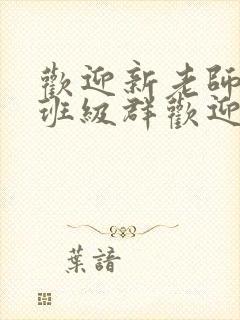 歡迎新老師
班級群歡迎
葉諳